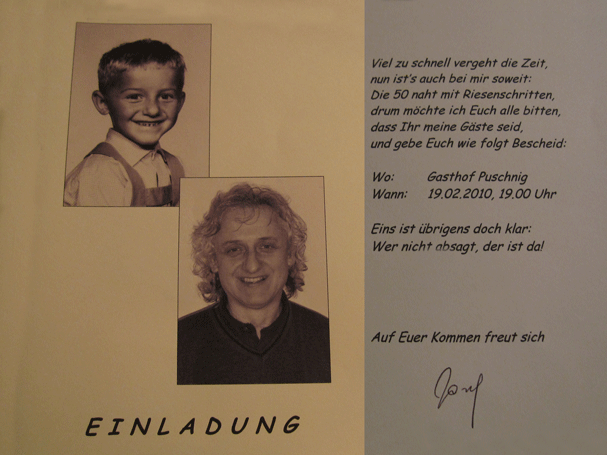 Viel zu schnell vergeht die Zeit,
nun ist's auch bei mir soweit:
Die 50 naht mit Riesenschritten,
drum möchte ich Euch alle bitten,
dass Ihr meine Gäste seid,
und gebe Euch wie folgt Bescheid:
Wo: Gasthof Puschnig
Wann: 19.02.2010, 19.00 Uhr
Eins ist übrigens doch klar:
Wer nicht absagt, der ist da!
Auf Euer Kommen freut sich
Josef
EINLADUNG